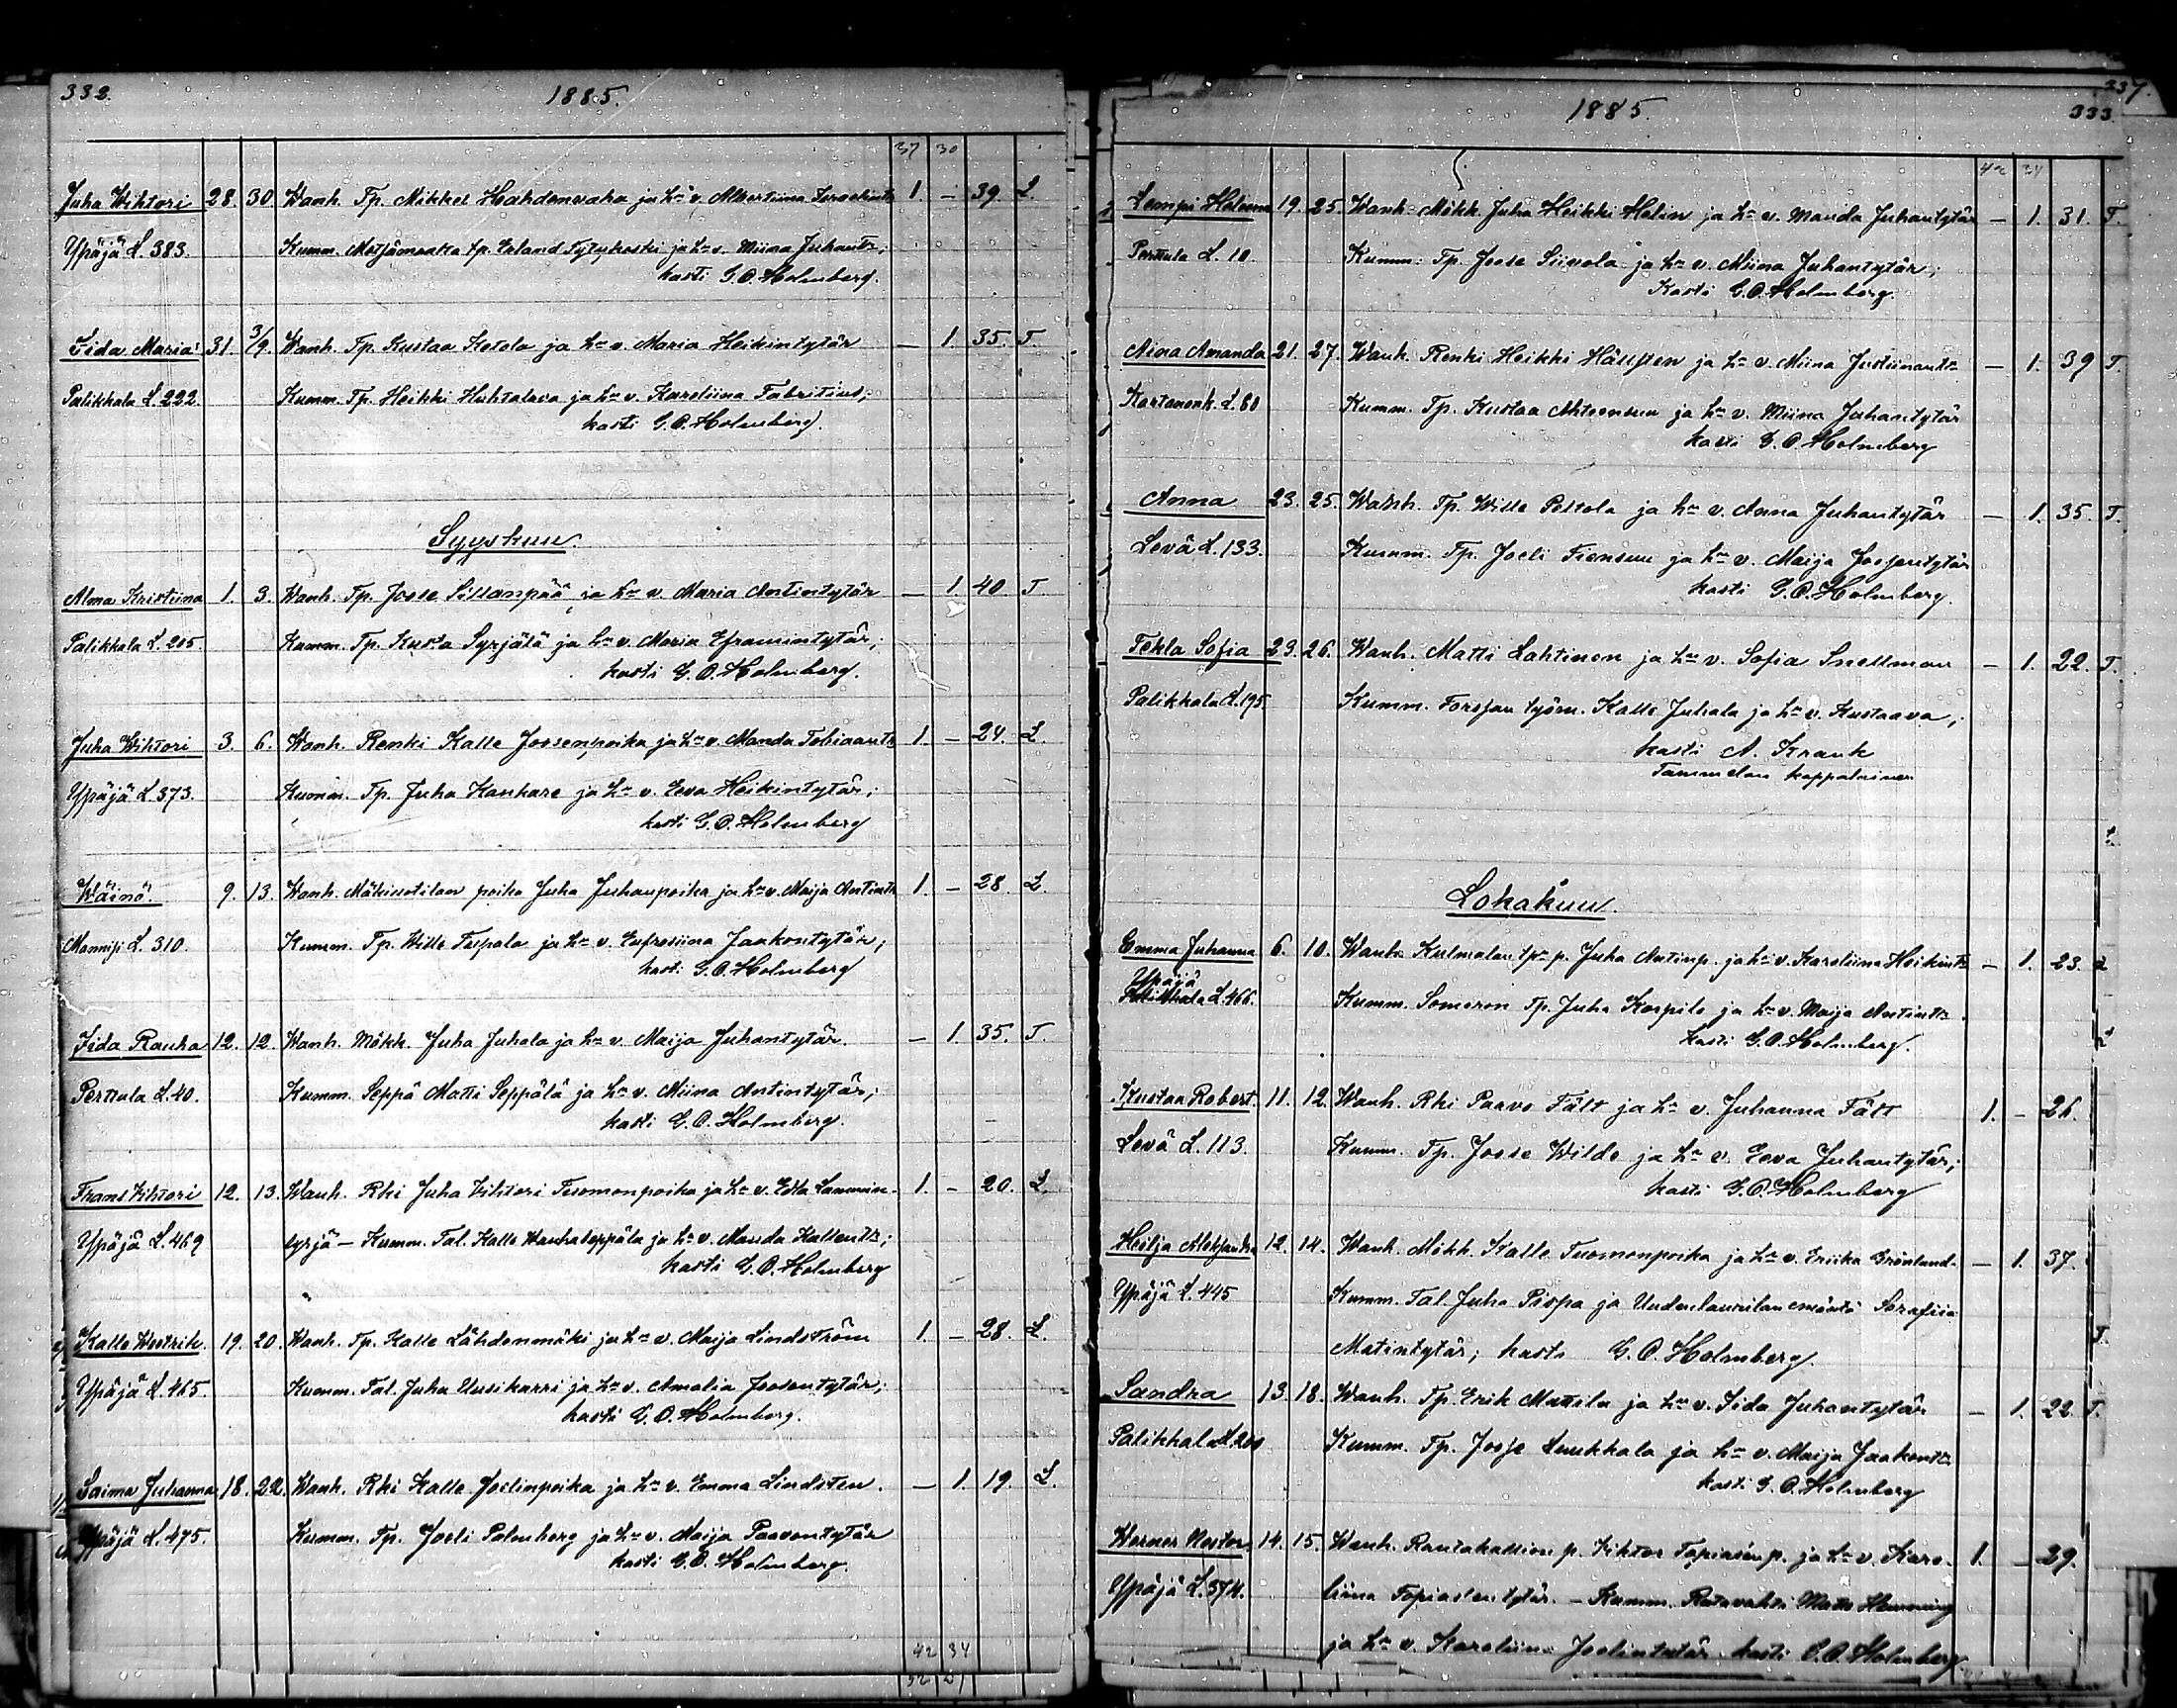 332.
1885.
37 30
Juha Wihtori 28. 30. Wanh. Tp. Mikkel Hahdenvaha ja hra v. Albertiina Israelintr 1. – 39. L.
Ypäjä L. 383. Kumm. Matjämaaka tp. Erland Tytykoski ja hra v. Miina Juhantr.;
kasti G.O. Holmberg.
Iida Maria 31. 3/9. Wanh. Tp. Kustaa Ketola ja hra v. Maria Heikintytär – 1. 35. T
Palikkala L. 222. Kumm. Tp. Heikki Huhtalava ja hra v. Karoliina Fabritius;
kasti G.O. Holmberg.
Syyskuu.
Alma Kristiina 1. 3. Wanh. Tp. Jose Sillanpää ja hra v. Maria Antintytär – 1. 40 T
Palikkala L. 205. Kumm. Tp. Kusta Syrjälä ja hra v. Maria Eframintytär;
kasti G.O. Holmberg.
Juha Wihtori 3. 6. Wanh. Renki Kalle Joosenpoika ja hra v. Manda Tobiaantr 1. – 24. L.
Ypäjä L. 373. Kumm. Tp. Juha Kanhare ja hra v. Eeva Heikintytär;
kasti G.O. Holmberg
Wäinö. 9. 13. Wanh. Mäkiuotilaan poika Juha Juhanpoika ja hra v. Maija Antintr 1. – 28. L.
Mannisi L. 310. Kumm. Tp. Wille Tupala ja hra v. Eufrosiina Jaakontytär;
kasti G.O. Holmberg
Iida Rauha 12. 12. Wanh. Mökk. Juha Juhala ja hra v. Maija Juhantytär. – 1. 35. T.
Perttula L. 40. Kumm. Seppä Matti Seppälä ja hra v. Miina Antintytär;
kasti G.O. Holmberg.
Frans Vihtori 12. 13. Wanh. Rki Juha Vihtori Tuomonpoika ja hra v. Edla Lammin- 1. – 20. L.
Ypäjä L. 469 syrjä – Kumm. Tal. Kalle Wanhaseppälä ja hra v. Manda Kallentr;
kasti G.O. Holmberg
Kalle Westrik. 19. 20. Wanh. Tp. Kalle Lähdenmäki ja hra v. Maija Lindström 1. – 28. L.
Ypäjä L. 465. Kumm. Tal. Juha Uusikarri ja hra v. Amalia Joosentytär;
kasti G.O. Holmberg.
Saima Juhanna 18. 22. Wanh. Rki Kalle Joelinpoika ja hra v. Emma Lindsten. – 1. 19. L.
Ypäjä L. 475. Kumm. Tp. Joeli Palmberg ja hra v. Maija Paavontytär
kasti G.O. Holmberg.
42 34
337.
1885.
333
42 34
Lempi Helena 19. 25. Wanh. Mökk. Juha Heikki Helin ja hra v. Manda Juhantytär – 1. 31. T.
Perttula L. 10. Kumm: Tp. Joose Siivola ja hra v. Miina Juhantytär;
Kasti G.O. Holmberg.
Aina Amanda 21. 27. Wanh. Renki Heikki Hällsten ja hra v. Miina Justiinantr – 1. 39 T.
Kartanonk. L. 80 Kumm. Tp. Kustaa Ahtoonsuu ja hra v. Miina Juhantytär
kasti G.O. Holmberg
Anna 23. 25. Wanh. Tp. Wille Peltola ja hra v. Anna Juhantytär – 1. 35. T.
Levä L. 133. Kumm. Tp. Joeli Fionsuu ja hra v. Maija Joosentytär
kasti G.O. Holmberg.
Tekla Sofia 23. 26. Wanh. Matti Lahtinen ja hra v. Sofia Snellman – 1. 22. T.
Palikkala L. 195 Kumm. Forssan työm. Kalle Juhala ja hra v. Kustaava;
kasti A. Krank
Tammelan kappalainen
Lokakuu.
Emma Juhanna 6. 10. Wanh. Kulmalan tpn p. Juha Antinp. ja hra v. Karoliina Heikintr – 1. 23. L
Ypäjä L. 466. Kumm. Someron Tp. Juha Korpilo ja hra v. Maija Antintr.
Kasti G.O. Holmberg.
Kustaa Robert. 11. 12. Wanh. Rki Paavo Fält ja hra v. Juhanna Fält 1. – 26.
Levä L. 113. Kumm. Tp. Joose Wilde ja hra v. Eeva Juhantytär;
kasti G.O. Holmberg
Hilja Aleksandra 12. 14. Wanh. Mökk. Kalle Tuomonpoika ja hra v. Eriika Grönlund. – 1. 37.
Ypäjä L. 445 Kumm. Tal. Juha Pispa ja Uudenlaurilan emäntä Serafiia
Matintytär; kasti G.O. Holmberg.
Sandra 13. 18. Wanh. Tp. Erik Mattila ja hra v. Iida Juhantytär – 1. 22. T.
Palikkala L. 200 Kumm. Tp. Joose Luukkala ja hra v. Maija Jaakontr
kasti G.O. Holmberg
Werner Nestor. 14. 15. Wanh. Rautakallion p. Vihtor Topiasenp. ja hra v. Karo- 1. – 29.
Ypäjä L. 374. liina Topiaksentytär. – Kumm. Ratavahti Matts Henning
ja hra v. Karoliina Joelintytär kasti G.O. Holmberg